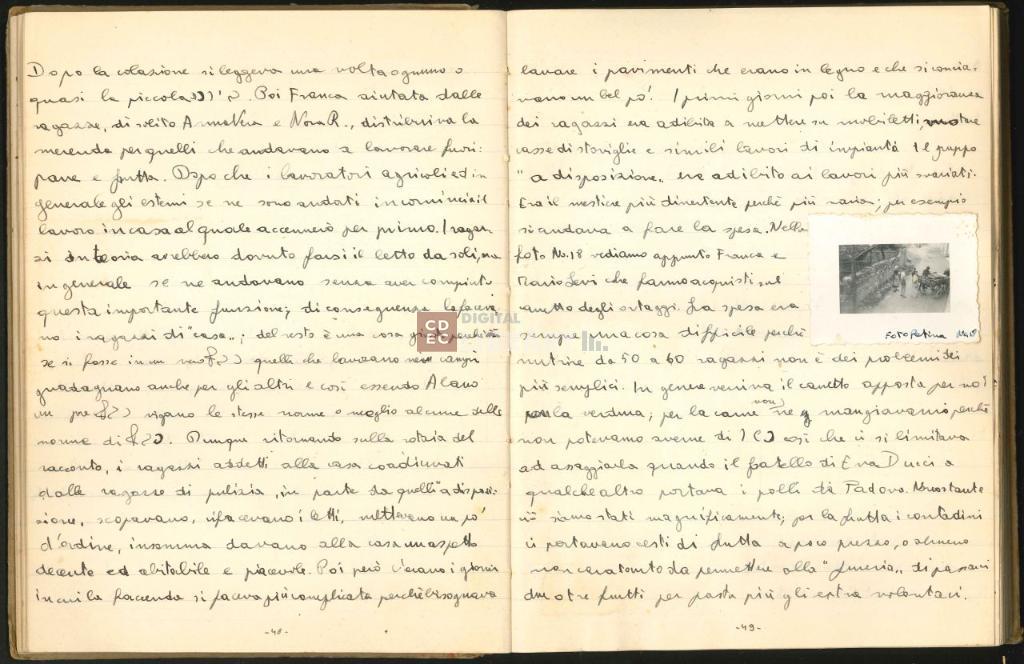 Dopo la colazione si leggeva una volta ognuno o
quasi la piccola. Poi Franca aiutata dalle
ragazze, di solito AnnaVera e Nora R., distribuiva la
merenda per quelli che andavano a lavorare fuori:
pane e frutta. Dopo che i lavoratori agricoli ed in
generale gli esterni se ne sono andati incomincia il
lavoro in casa al quale accennerò per primo. I ragaz-
zi in teoria avrebbero dovuto farsi il letto da soli, ma
in generale se ne andavano senza aver compiuto
questa importante funzione; di conseguenza lo faceva
no i ragazzi di "casa"; del resto è una cosa
se si fosse in un quelli che lavorano nei campi
guadagnano anche per gli altri e così essendo Alano
un vigono le stesse norme o meglio alcune delle
norme di. Dunque ritornando sulla rotaia del
racconto, i ragazzi addetti alla casa coadiuvati
dalle ragazze di pulizia, in parte da quelli "a disposi-
zione, scopavano, rifacevano i letti, mettevano un po'
d'ordine, insomma davano alla casa un aspetto
decente ed abitabile e piacevole. Poi però c'erano i giorni
in cui la faccenda si faceva più complicata perchè bisognava
-48-
lavare i pavimenti che erano in legno e che si concia-
vano un bel po'. I primi giorni poi la maggioranza
dei ragazzi era adibita a mettere su mobiletti,
casse di stoviglie e simili lavori di impianto. Il gruppo
"a disposizione" era adibito ai lavori più svariati.
Era il mestiere più divertente perchè più vario; per esempio
si andava a fare la spesa. Nella
foto No. 18 vediamo appunto Franca e
Mario Levi che fanno acquisti sul
carretto degli ortaggi. La spesa era
sempre una cosa difficile perchè
nutrire da 50 a 60 ragazzi non è dei problemi dei
più semplici. In genere veniva il carretto apposta per noi
per la verdura; per la carne non ne mangiavamo perchè
non potevamo averne di così che ci si limitava
ad assaggiarla quando il fratello di Eva Ducci o
qualche altro portava i polli da Padova. Nonostante
ciò siamo stati magnificamente; per la frutta i contadini
ci portavano cesti di frutta a poco prezzo, o almeno
non caro tanto da permettere alla "fureria" di passarci
due o tre frutti per pasto più gli extra volontari.
-49-
Foto Retina No 18
CD
EC
DIGITAL